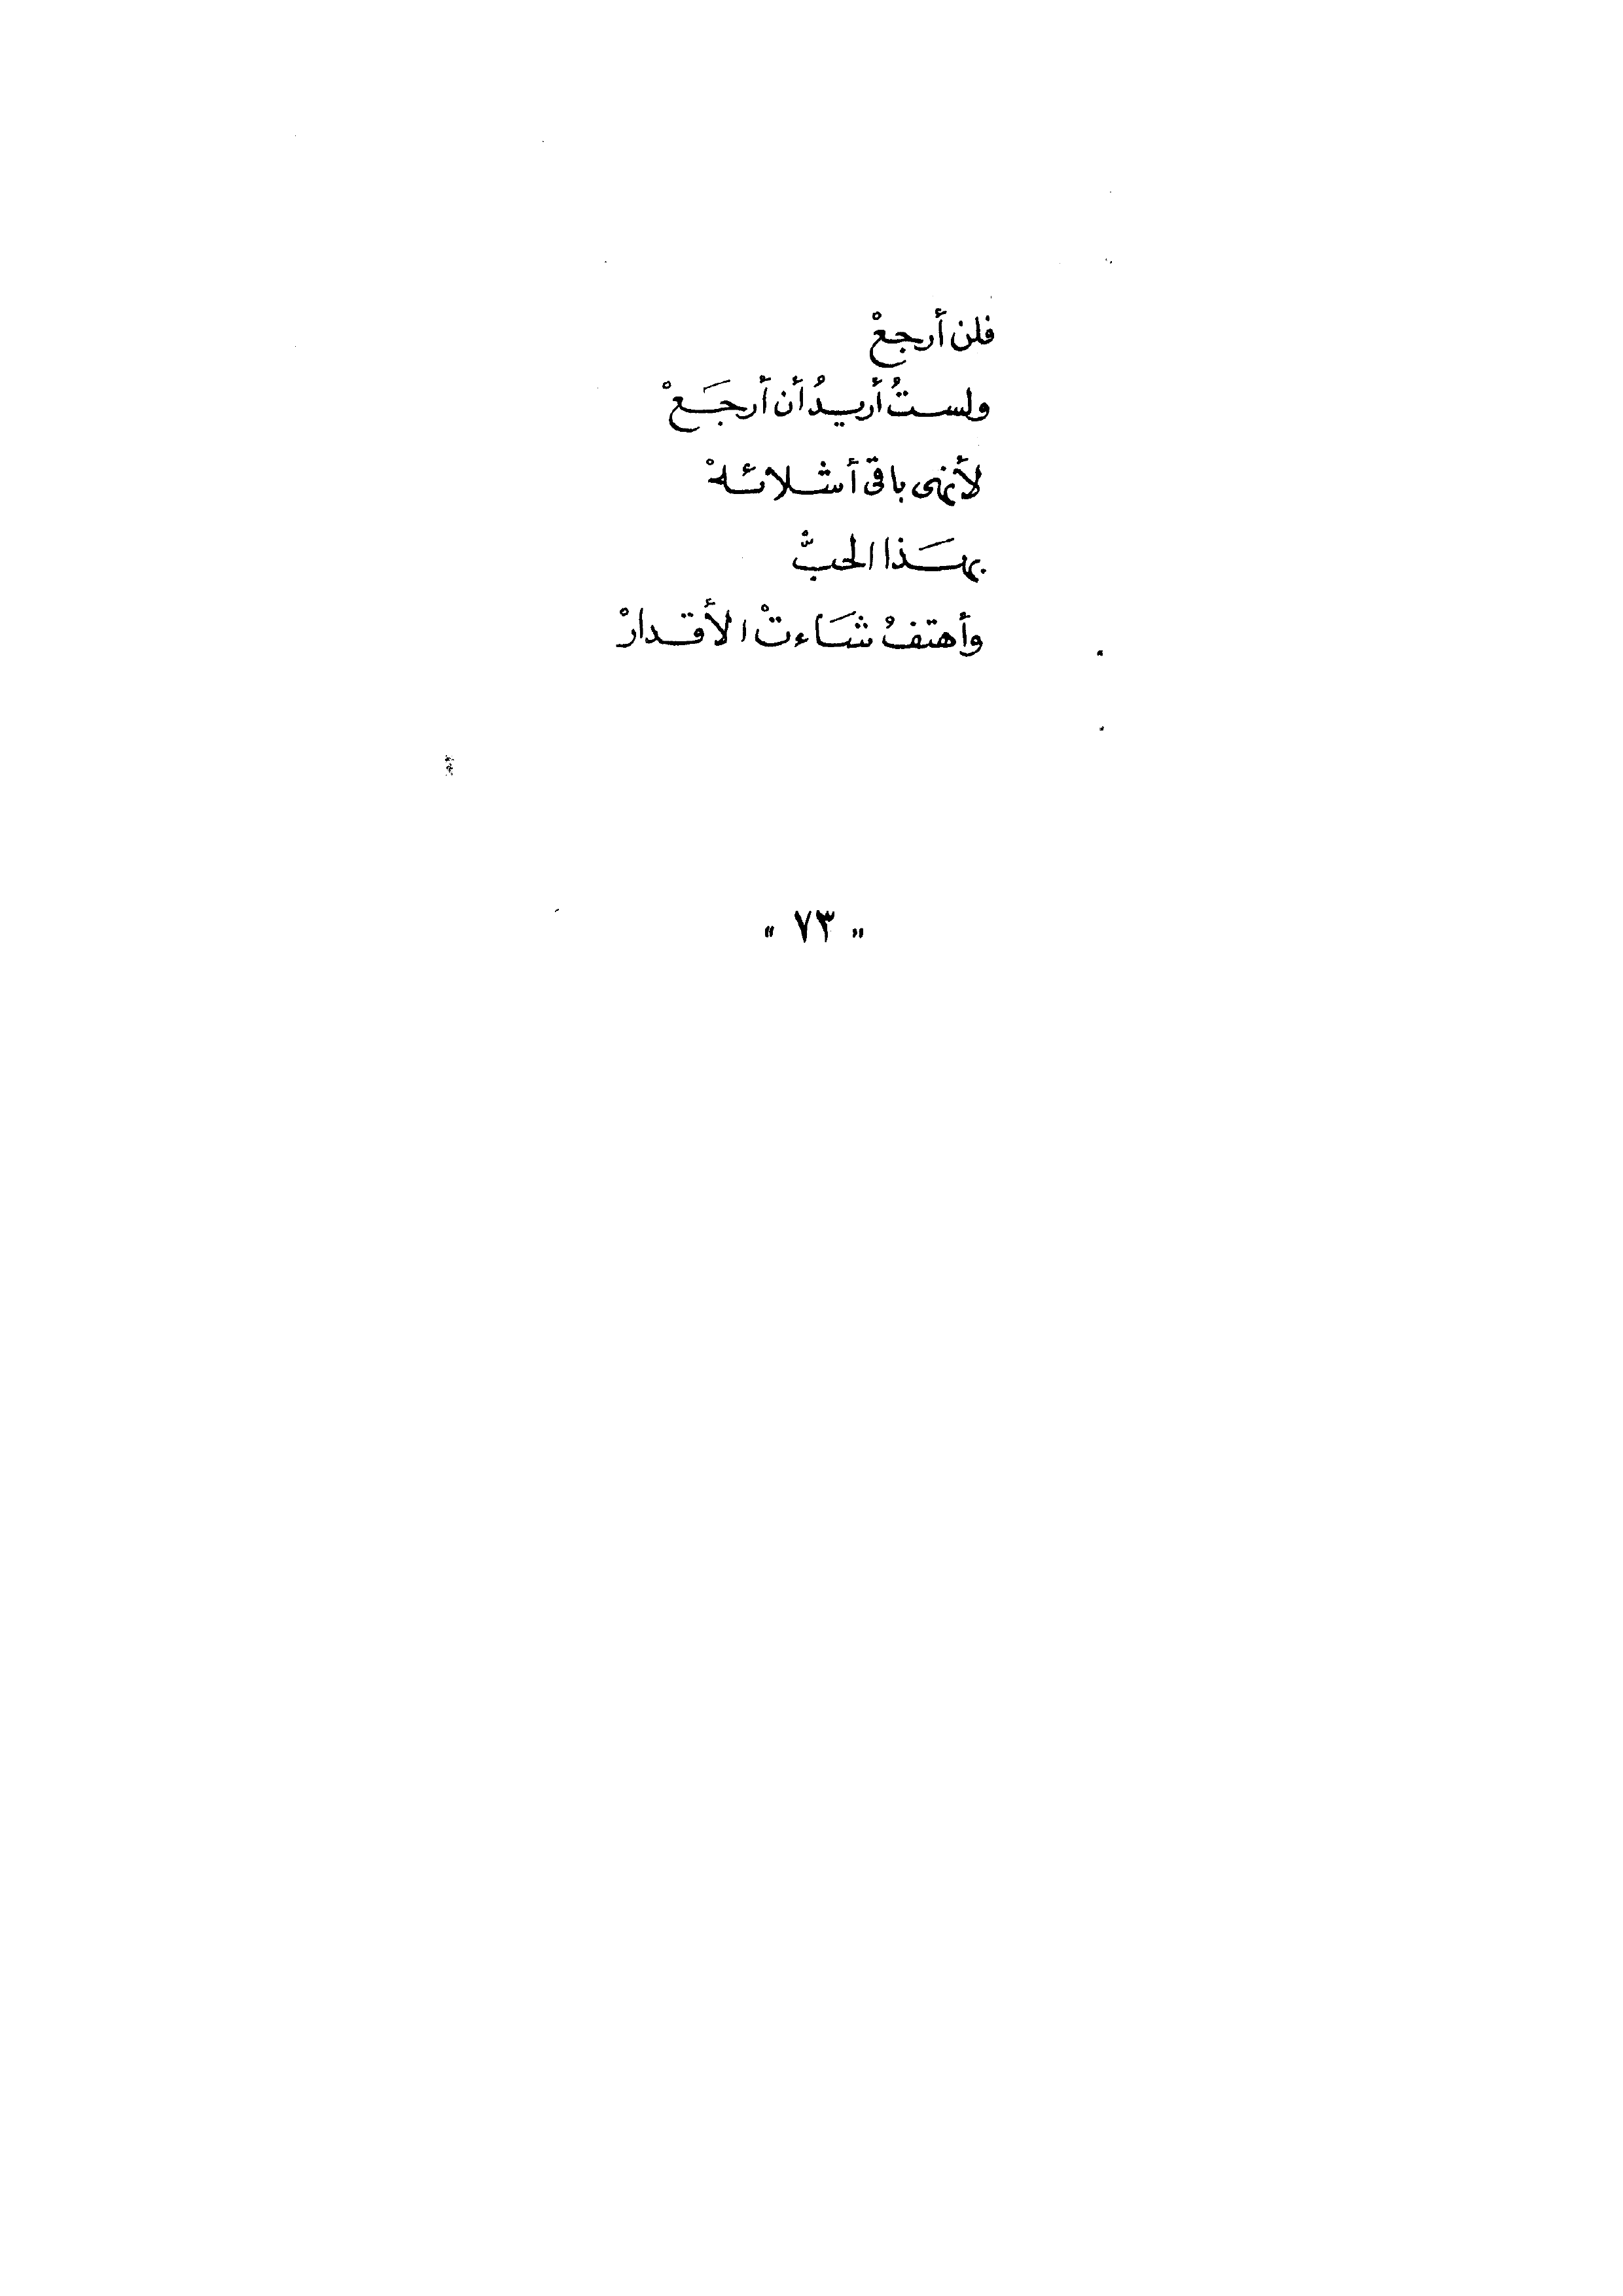 فلن أرجعْ
ولستُ أريدُ أن أرجَعْ
لأنهى باقى أشلائهْ
بهَذا الحبّْ
وأهتفْ شَاءتْ الأقدارْ
" ٧٣ "